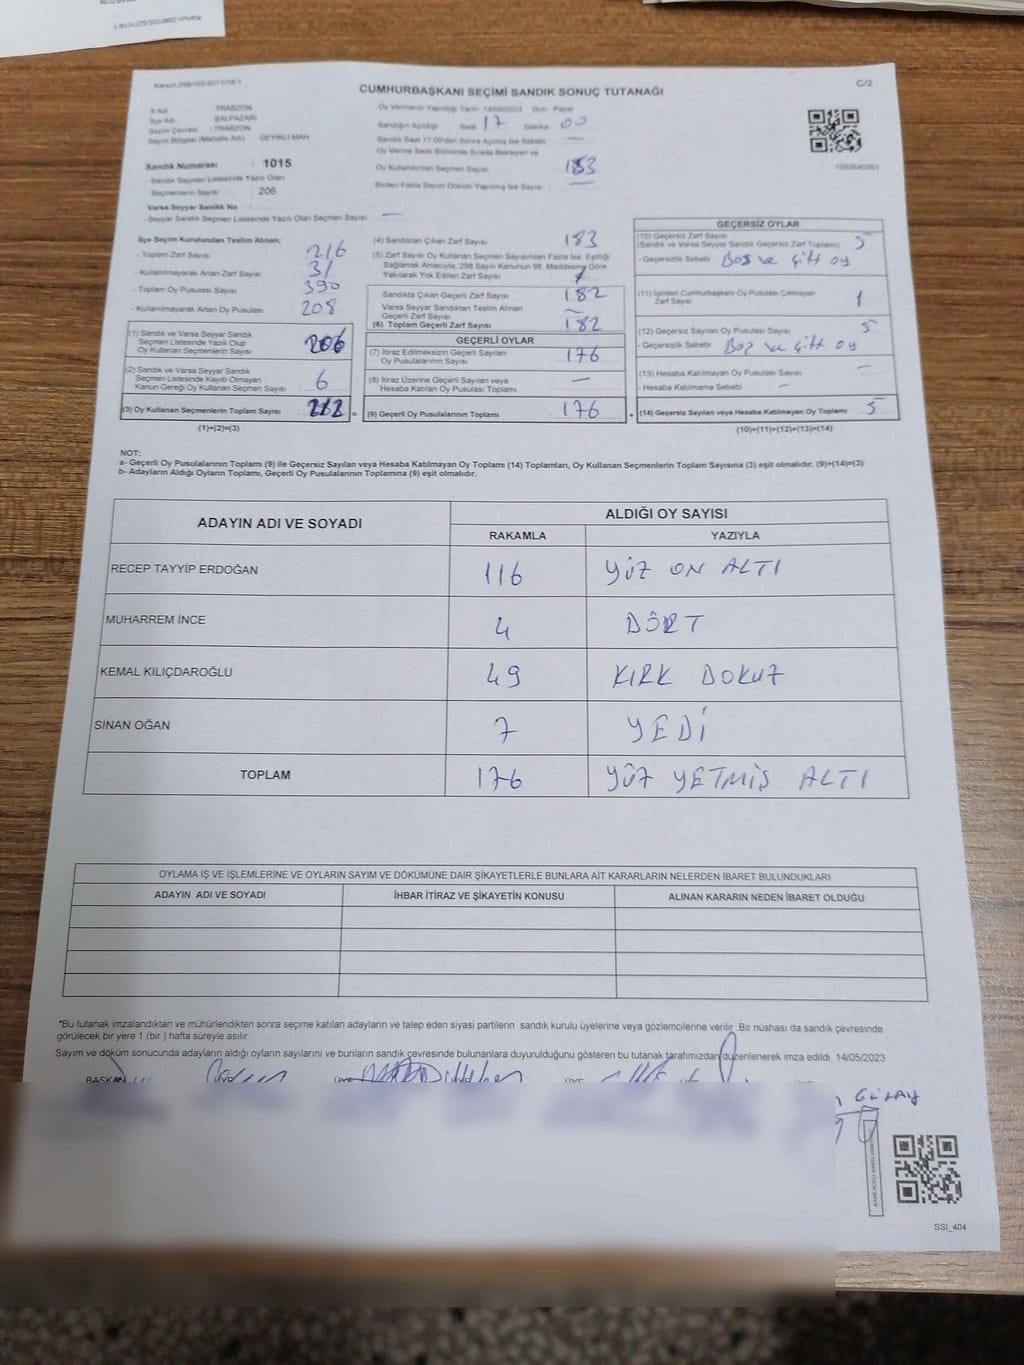 Kanun:298/105,6271/18-1
CUMHURBAŞKANI SEÇİMİ SANDIK SONUÇ TUTANAĞI
C/2
İl Adı : TRABZON
İlçe Adı : ŞALPAZARI
Seçim Çevresi : TRABZON
Seçim Bölgesi (Mahalle Adı) : GEYİKLİ MAH.
Sandık Numarası : 1015
- Sandık Seçmen Listesinde Yazılı Olan
Seçmenlerin Sayısı : 206
Varsa Seyyar Sandık No :
- Seyyar Sandık Seçmen Listesinde Yazılı Olan Seçmen Sayısı : —
Oy Vermenin Yapıldığı Tarih: 14/05/2023 Gün: Pazar
Sandığın Açıldığı Saat 17 Dakika 00
Sandık Saat 17:00'den Sonra Açılmış İse Sebebi: —
Oy Verme Saati Bitiminde Sırada Bekleyen ve
Oy Kullandırılan Seçmen Sayısı : 183
Birden Fazla Sayım Döküm Yapılmış İse Sayısı : —
İlçe Seçim Kurulundan Teslim Alınan;
- Toplam Zarf Sayısı : 216
- Kullanılmayarak Artan Zarf Sayısı : 31
- Toplam Oy Pusulası Sayısı : 390
- Kullanılmayarak Artan Oy Pusulası : 208
(1) Sandık ve Varsa Seyyar Sandık
Seçmen Listesinde Yazılı Olup
Oy Kullanan Seçmenlerin Sayısı
(2) Sandık ve Varsa Seyyar Sandık
Seçmen Listesinde Kayıtlı Olmayan
Kanun Gereği Oy Kullanan Seçmen Sayısı 6
(3) Oy Kullanan Seçmenlerin Toplam Sayısı
(1)+(2)=(3)
(4) Sandıktan Çıkan Zarf Sayısı : 183
(5) Zarf Sayısı Oy Kullanan Seçmen Sayısından Fazla İse, Eşitliği
Sağlamak Amacıyla, 298 Sayılı Kanunun 98. Maddesine Göre
Yakılarak Yok Edilen Zarf Sayısı :
Sandıkta Çıkan Geçerli Zarf Sayısı : 182
Varsa Seyyar Sandıktan Teslim Alınan
Geçerli Zarf Sayısı : —
(6) Toplam Geçerli Zarf Sayısı : 182
GEÇERLİ OYLAR
(7) İtiraz Edilmeksizin Geçerli Sayılan
Oy Pusulalarının Sayısı : 176
(8) İtiraz Üzerine Geçerli Sayılan veya
Hesaba Katılan Oy Pusulası Toplamı : —
(9) Geçerli Oy Pusulalarının Toplamı : 176
GEÇERSİZ OYLAR
(10) Geçersiz Zarf Sayısı
(Sandık ve Varsa Seyyar Sandık Geçersiz Zarf Toplamı) : 5
- Geçersizlik Sebebi : Boş ve çift oy
(11) İçinden Cumhurbaşkanı Oy Pusulası Çıkmayan
Zarf Sayısı : 1
(12) Geçersiz Sayılan Oy Pusulası Sayısı : 5
- Geçersizlik Sebebi : Boş ve çift oy
(13) Hesaba Katılmayan Oy Pusulası Sayısı : —
- Hesaba Katılmama Sebebi : —
(14) Geçersiz Sayılan veya Hesaba Katılmayan Oy Toplamı : 5
(10)+(11)+(12)+(13)=(14)
NOT:
a- Geçerli Oy Pusulalarının Toplamı (9) ile Geçersiz Sayılan veya Hesaba Katılmayan Oy Toplamı (14) Toplamları, Oy Kullanan Seçmenlerin Toplam Sayısına (3) eşit olmalıdır. (9)+(14)=(3)
b- Adayların Aldığı Oyların Toplamı, Geçerli Oy Pusulalarının Toplamına (9) eşit olmalıdır.
ADAYIN ADI VE SOYADI
ALDIĞI OY SAYISI
RAKAMLA YAZIYLA
RECEP TAYYİP ERDOĞAN 116 YÜZ ON ALTI
MUHARREM İNCE 4 DÖRT
KEMAL KILIÇDAROĞLU 49 KIRK DOKUZ
SİNAN OĞAN 7 YEDİ
TOPLAM 176 YÜZ YETMİŞ ALTI
OYLAMA İŞ VE İŞLEMLERİNE VE OYLARIN SAYIM VE DÖKÜMÜNE DAİR ŞİKAYETLERLE BUNLARA AİT KARARLARIN NELERDEN İBARET BULUNDUKLARI
ADAYIN ADI VE SOYADI İHBAR İTİRAZ VE ŞİKAYETİN KONUSU ALINAN KARARIN NEDEN İBARET OLDUĞU
*Bu tutanak imzalandıktan ve mühürlendikten sonra seçime katılan adayların ve talep eden siyasi partilerin sandık kurulu üyelerine veya gözlemcilerine verilir. Bir nüshası da sandık çevresinde
görülecek bir yere 1 (bir) hafta süreyle asılır.
Sayım ve döküm sonucunda adayların aldığı oyların sayılarını ve bunların sandık çevresinde bulunanlara duyurulduğunu gösteren bu tutanak tarafımızdan düzenlenerek imza edildi. 14/05/2023
BAŞKAN ÜYE ÜYE
SSI_404